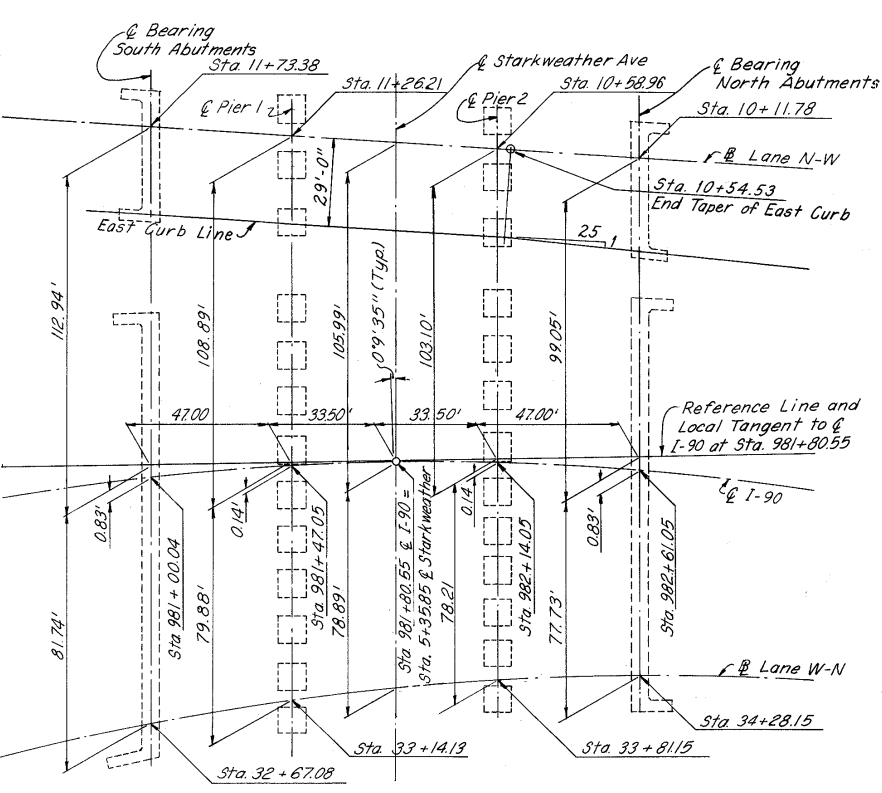 ℄ Bearing
South Abutments
Sta. 11+73.38
℄ Pier 1
Sta. 11+26.21
℄ Starkweather Ave
Sta. 10+58.96
℄ Pier 2
℄ Bearing
North Abutments
Sta. 10+11.78
℄ Lane N-W
Sta. 10+54.53
End Taper of East Curb
29'-0"
East Curb Line
25
1
112.94'
108.89'
105.99'
0°9'35" (Typ.)
103.10'
99.05'
47.00
33.50'
33.50'
47.00'
Reference Line and
Local Tangent to ℄
I-90 at Sta. 981+80.55
℄ I-90
0.83'
0.14'
0.14
0.83'
81.74'
Sta 981+00.04
79.88'
Sta. 981+47.05
78.89'
Sta. 981+80.55 ℄ I-90 =
Sta. 5+35.85 ℄ Starkweather
78.21
Sta. 982+14.05
77.73'
Sta. 982+61.05
℄ Lane W-N
Sta. 34+28.15
Sta. 33+14.13
Sta. 33+81.15
Sta. 32+67.08